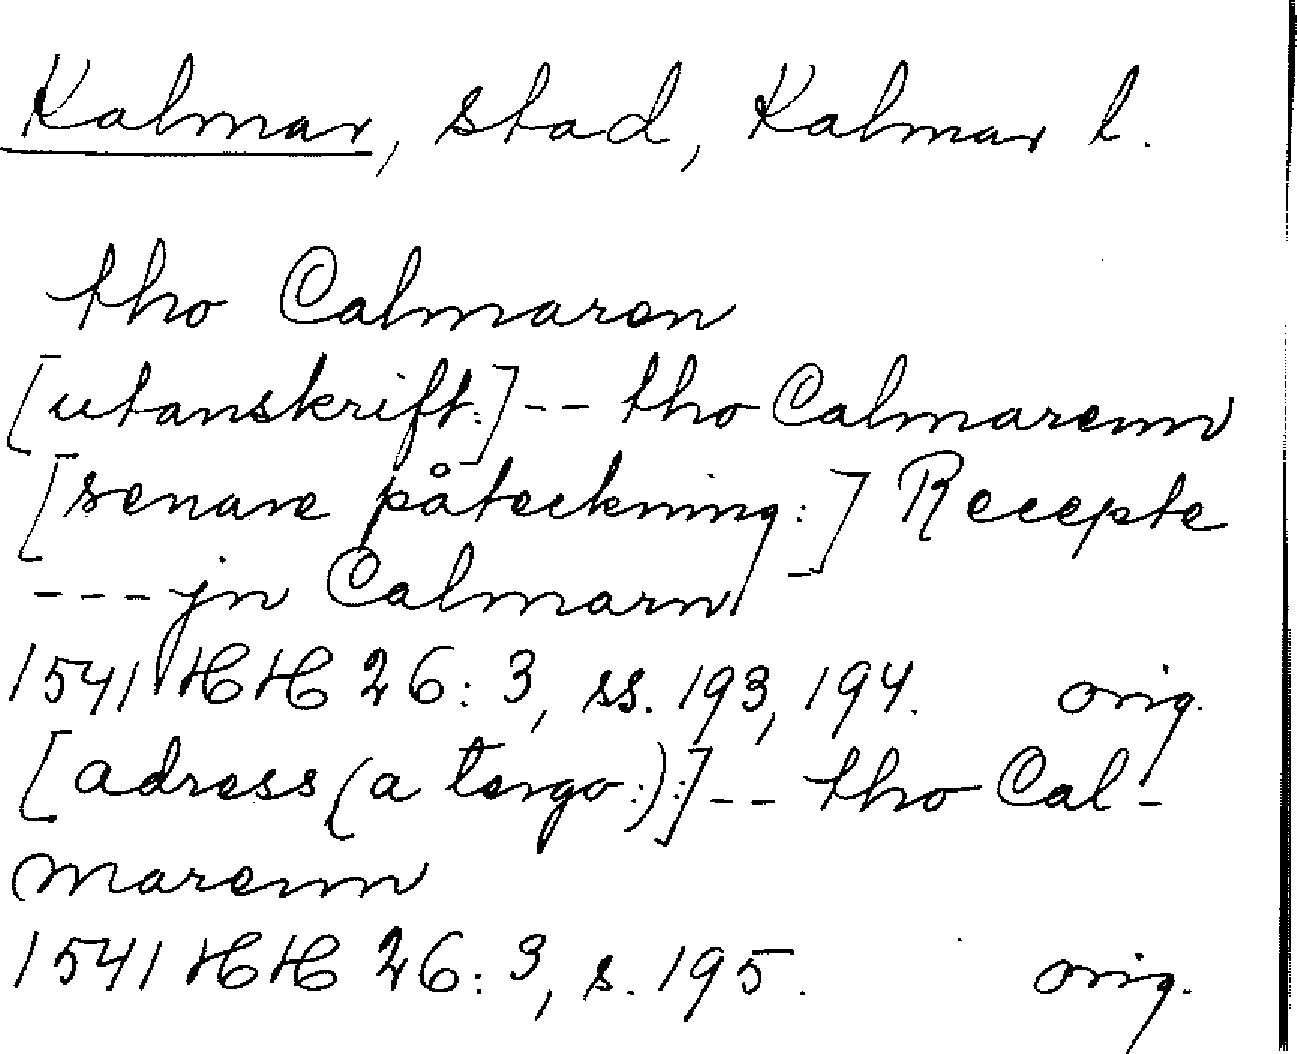 Kalmar, stad, Kalmar l.
tho Calmaren
[utanskrift:] -- tho Calmarenn
[senare påteckning:] Recepte
--- jn Calmarn
1541 HH 26: 3, ss. 193, 194. orig.
[adress (a tergo:):] -- tho Cal-
marenn
1541 HH 26: 3, s. 195. orig.